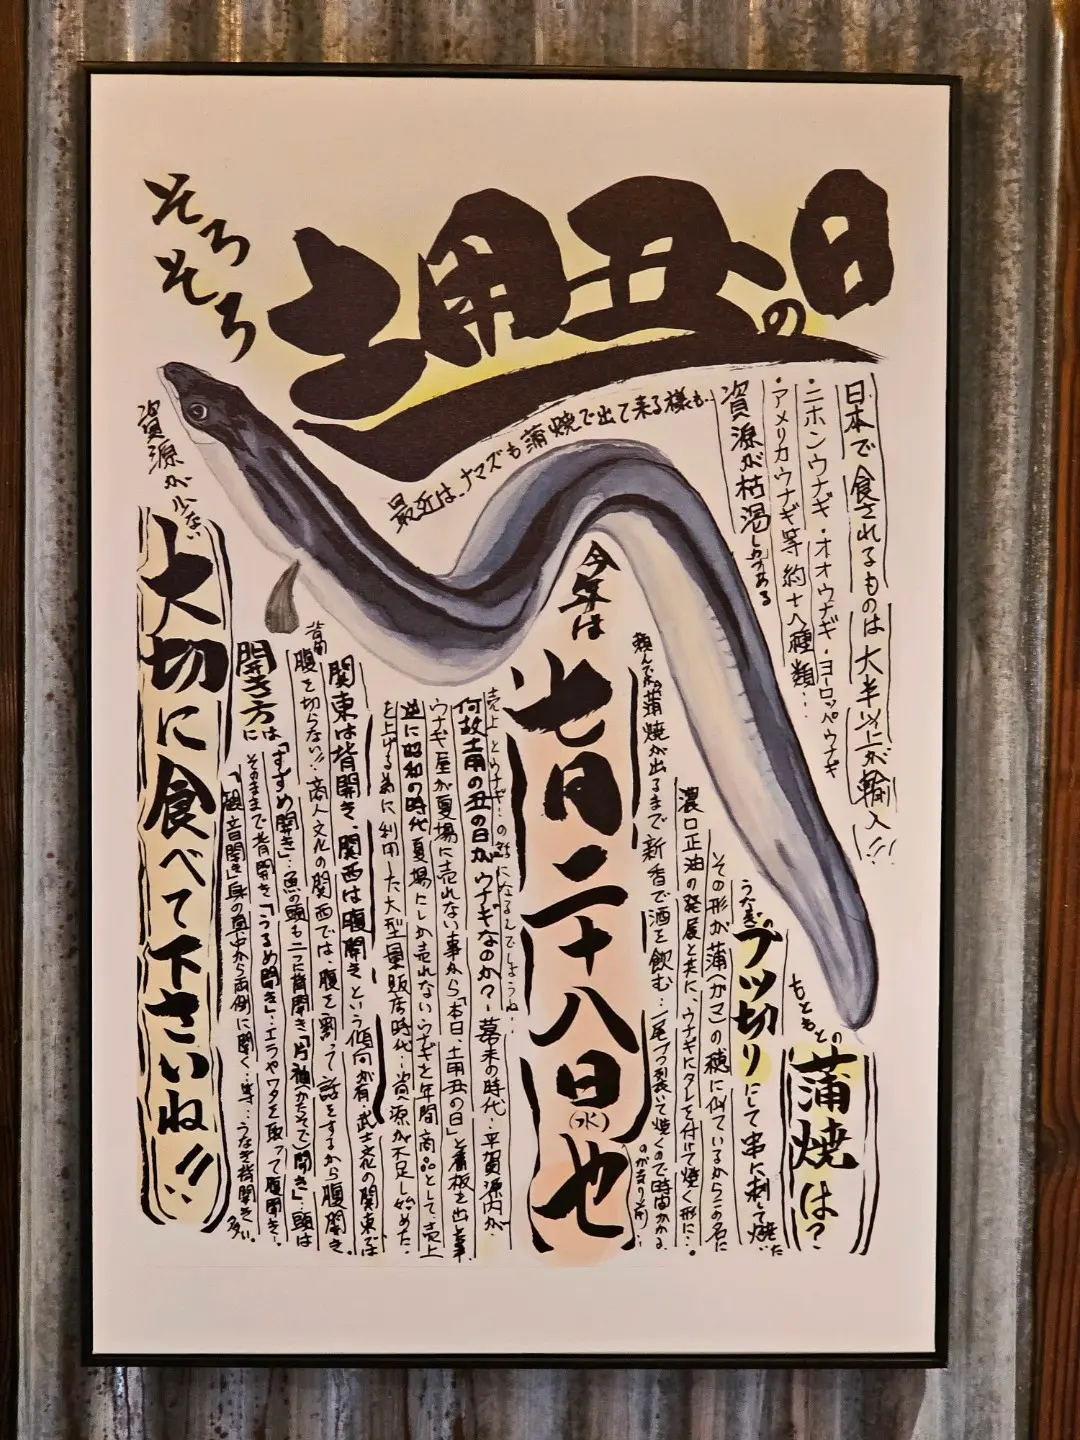 そろそろ
土用丑の日
日本で食されるものは大半以上が輸入!!
・ニホンウナギ・オオウナギ・ヨーロッパウナギ
・アメリカウナギ等約十八種類…
資源が枯渇しつつある
最近は、ナマズも蒲焼で出て来る様も…
もともとの
蒲焼は?
うなぎの
ブツ切りにして串に刺して焼いた
その形が蒲(ガマ)の穂に似ているからこの名に
濃口正油の発展と共に、ウナギにタレを付けて焼く形に…。
頼んでから蒲焼が出るまで新香で酒を飲む…一尾づつ裂いて焼くので時間かかる
のが当り前…
今年は
七月二十八日(水)也
売上とウナギ…の話になるんでしょうね…
何故土用の丑の日がウナギなのか?…幕末の時代…平賀源内が
ウナギ屋が夏場に売れない事から「本日、土用丑の日」と看板を出した事
逆に昭和の時代夏場にしか売れないウナギを年間商品として売上
を上げる為に利用した大型量販店時代…資源が不足し始めた…
関東は背開き、関西は腹開きという傾向が有、武士文化の関東では
腹を切らない!!商人文化の関西では、腹を割って話をするから腹開き。
開き方には
「すずめ開き」…魚の頭も二つに背開き「片袖(かたそで)開き」…頭は
そのままで背開き「うるめ開き」…エラやワタを取って腹開き…
「観音開き」身の真中から両側に開く…等…うなぎ背開き多い。
資源が少ない
大切に食べて下さいね!!